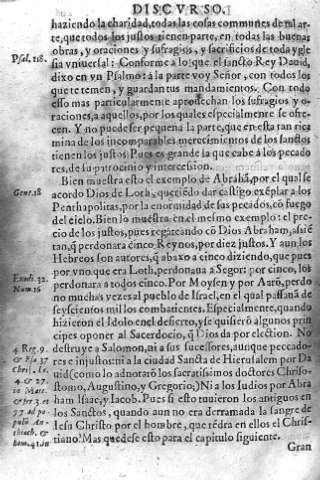 DISCVRSO.
haziendo la charidad, todas las cosas communes de tal ar-
te, que todos los justos tienen parte, en todas las buenas
obras, y oraciones y sufragios, y sacrificios de toda ygle
sia vniuersal: Conforme a lo que el sancto Rey Dauid,
Psal. 118.
dixo en vn Psalmo: a la parte voy Señor, con todos los
que te temen, y guardan tus mandamientos. Con todo
esso mas particularmente aprouechan los sufragios y o-
raciones, a aquellos, por los quales especialmente se ofre-
cen. Y no puede ser pequena la parte, que en esta tan ric
mina de los incomparables merecimientos de los sanctos
tienen los justos. Pues es grande la que cabe a los pecado
res, de su patrocinio y intercession.
Bien muestra esto el exemplo de Abrahã, por el qual se
Gene. 18
acordo Dios de Lora, queriẽdo dar castigo exẽplar a los
Penthapolitas, por la enormidad de sus pecados, cõ fuego
del cielo. Bien lo muestra en el mesmo exemplo: el pre-
cio de los justos, pues regateando cõ Dios Abraham, salẽ
tan, q̃ perdonara cinco Reynos, por diez justos. Y aun los
Hebreos son autores, q̃ abaxo a cinco diziendo, que pues
por vno que era Loth, perdonaua a Segor: por cinco, los
Exodi. 32.
perdonara a todos cinco. Por Moysen y por Aarõ, perdo
Num. 16
no muchas vezes al pueblo de Israel, en el qual passauã de
seyscientos mil combatientes. Especialmente, quando
hizieron el Idolo en el desierto, y se quisierõ algunos prin
cipes oponer al Sacerdocio, q̃ Dios da por election. No
4 Reg. 9.
destruye a Salomon, ni a sus successores, aunque peccado-
res e injustos: ni a la ciudad Sancta de Hierusalem por Da
uid (como lo adnotarõ los sacratissimos doctores Chriso-
stomo, Augustino, y Gregorio;) Ni a los Iudios por Abra
ham Isaac, y Iacob. Pues si esto tuuieron los antiguos en
los Sanctos, quando aun no era derramada la sangre de
Iesu Christo por el hombre, que rẽdra en ellos el Chris-
tiano? Mas quedese esto para el capitulo siguiente.
Gran